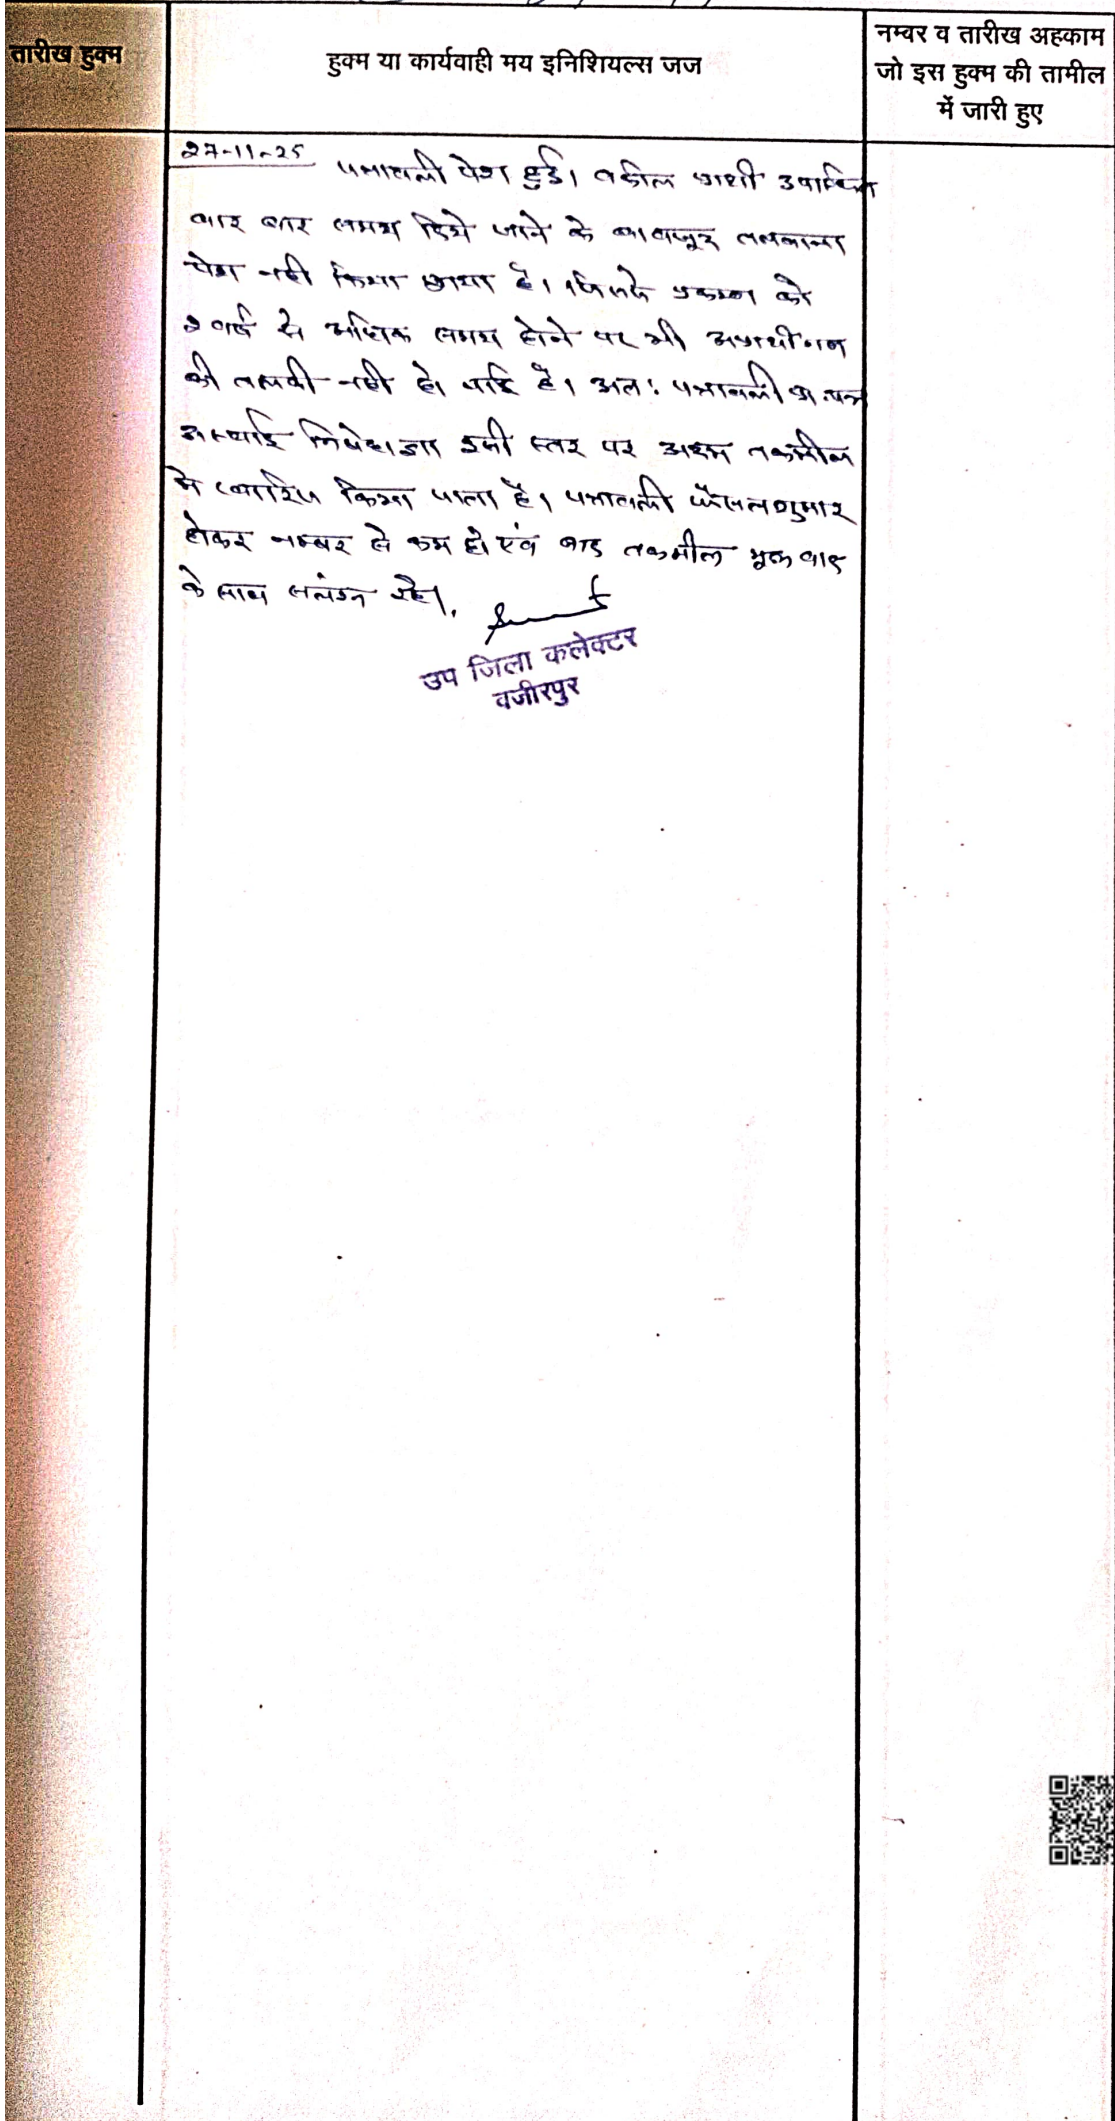 तारीख हुक्म
हुक्म या कार्यवाही मय इनिशियल्स जज
नम्वर व तारीख अहकाम
जो इस हुक्म की तामील
में जारी हुए
27-11-25 पत्रावली पेश हुई। वकील प्रार्थी उपस्थित
बार बार समय दिये जाने के बावजूद तलबाना
पेश नही किया गया है। जिसके प्रकरण को
2 वर्ष से अधिक समय होने पर भी अप्रार्थीगण
की तलवी नही हो पाई है। अतः पत्रावली प्रा. पत्र
अस्थाई निषेधाज्ञा इसी स्तर पर अदम तकमील
मे खारिज किया जाता है। पत्रावली फैसलशुमार
होकर नम्बर से कम हो एंव बाद तकमील मूल वाद
के साथ सलंग्न रहे।
उप जिला कलेक्टर
वजीरपुर